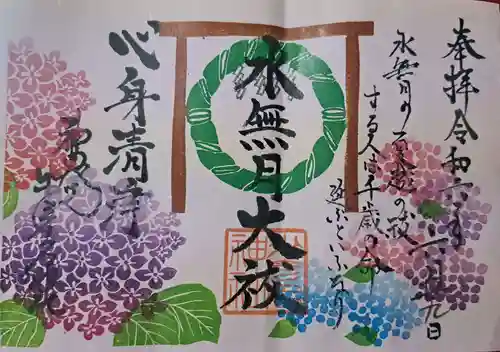 奉拝令和六年六月九日
水無月の夏越の祓
する人は千歳の命
延ぶといふなり
水無月大祓
神社
心身清浄